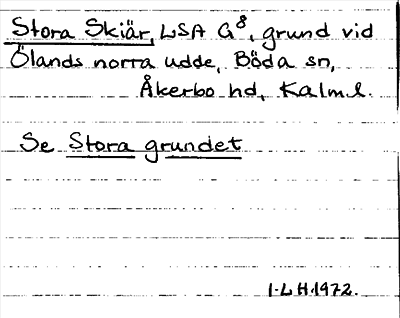 Stora Skiär, LSA G⁸, grund vid
Ölands norra udde, Böda sn,
Åkerbo hd, Kalm.l.
Se Stora grundet
I-LH.1972.